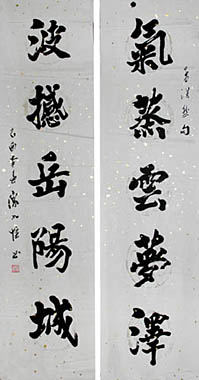 氣蒸雲夢澤
孟浩然句
波撼岳陽城